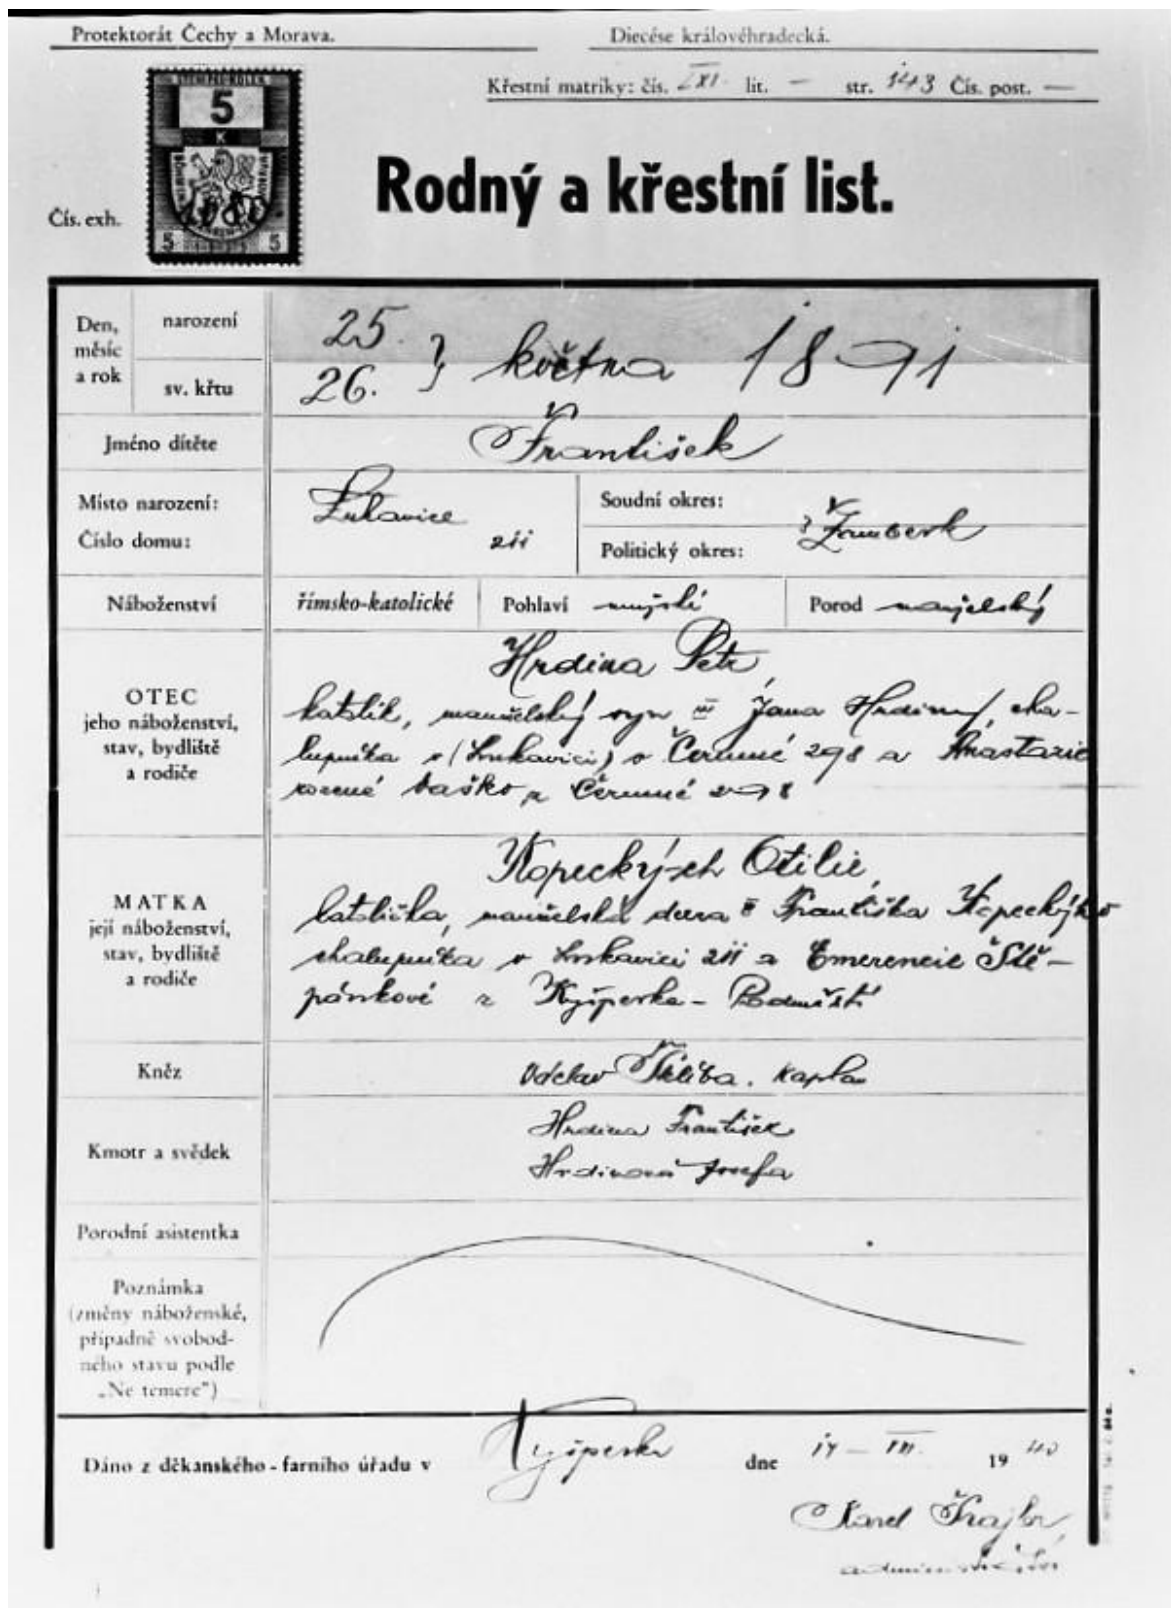 Protektorát Čechy a Morava.
Diecése královéhradecká.
Křestní matriky: čís. lit. — str. 143 Čís. post. —
5
K
5 5
Čís. exh.
Rodný a křestní list.
Den, měsíc a rok
narození 25.
sv. křtu 26. } května 1891
Jméno dítěte František
Místo narození: Lukavice
Číslo domu: 211
Soudní okres:
Politický okres: } Žamberk
Náboženství římsko-katolické Pohlaví mužské Porod manželský
OTEC
jeho náboženství,
stav, bydliště
a rodiče
Hrdina Petr,
katolík, manželský syn Jana Hrdiny, cha-
lupníka v (Lukavici) v Čermné 298 a Anastazie
rozené z Čermné
MATKA
její náboženství,
stav, bydliště
a rodiče
Kopeckých Otilie,
katolička, manželská dcera Františka Kopeckého
chalupníka v Lukavici 211 a Emerencie Ště-
pánkové z Kyšperka - Podměstí
Kněz Václav kaplan
Kmotr a svědek
Hrdina František
Hrdinová Josefa
Porodní asistentka
Poznámka
(změny náboženské,
případně svobod-
ného stavu podle
„Ne temere")
Dáno z děkanského - farního úřadu v Kyšperku dne 19 40
Karel
administrátor